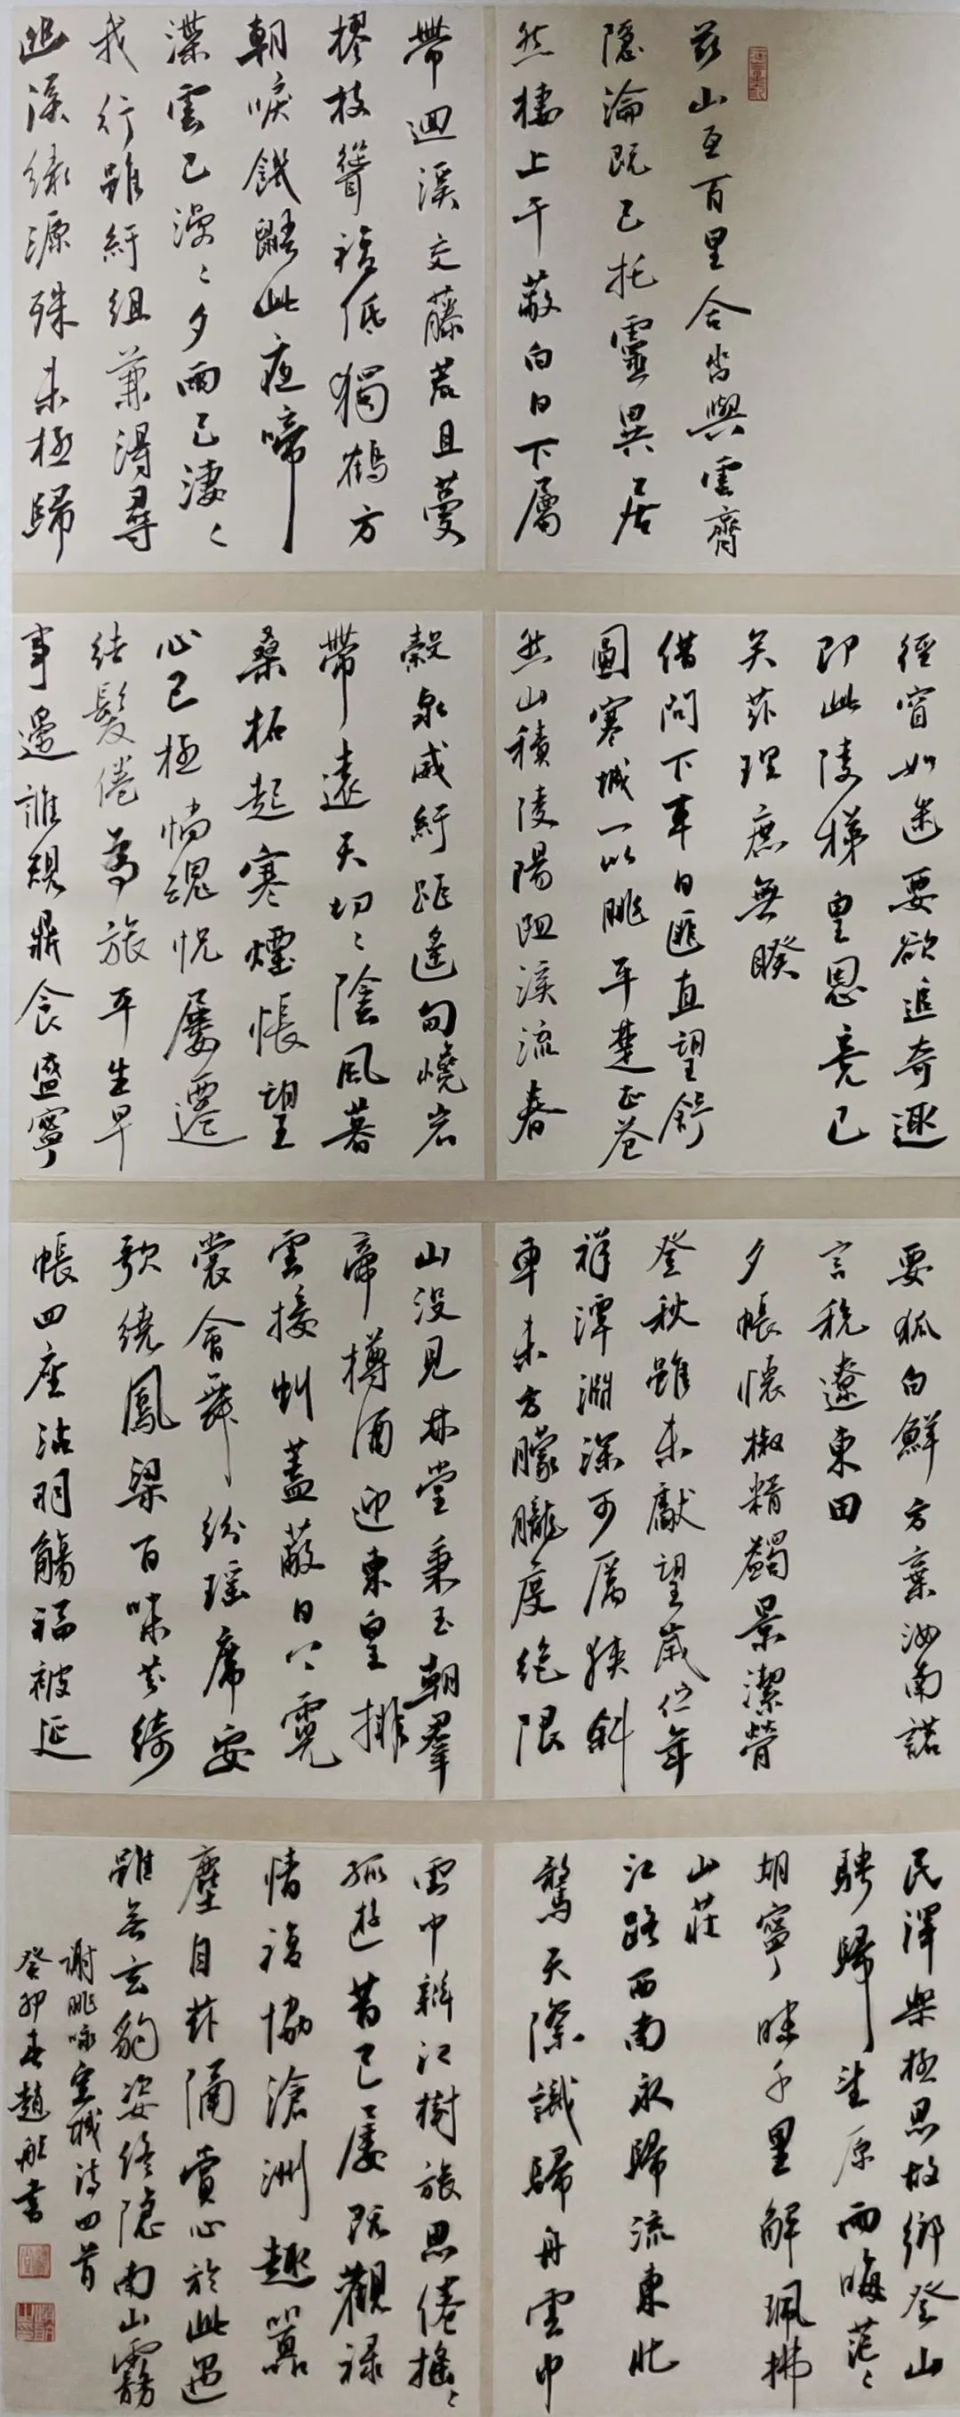 茲山亙百里合沓與雲齊
隱淪既已托靈異居
然棲上干蔽白日下屬
帶迴溪交藤荒且蔓
樛枝聳複低獨鶴方
朝唳飢鼯此夜啼
渫雲已漫〻夕雨已淒〻
我行雖紆組兼得尋
幽溪緣源殊未極歸
徑窅如迷要欲追奇趣
即此陵梯皇恩竟已
矣茲理庶無睽
借問下車日匪直望舒
圓寒城一以眺平楚正蒼
然山積陵陽阻溪流春
穀泉威紆距遙甸巉岩
帶遠天切〻陰風暮
桑柘起寒煙悵望
心已極惝魂怳屢遷
結髮倦為旅平生早
事邊誰規鼎食盛寧
要狐白鮮方棄汝南諾
言稅遼東田
夕帳懷椒糈蠲景潔膋
登秋雖未獻望歲佇年
祥潭淵深可厲狹斜
車未方朦朧度絕限
山沒見林堂秉玉朝群
帝樽酒迎東皇排
雲接虯蓋蔽日下霓
裳會舞紛瑤席安
歌繞鳳梁百味芬綺
帳四座沾羽觴福被延
民澤樂極思故鄉登山
騁歸望原雨晦茫〻
胡寧昧千里解珮拂
山莊
江路西南永歸流東北
鶩天際識歸舟雲中
雲中辨江樹旅思倦搖〻
孤遊昔已屢既觀祿
情復協滄洲趣囂
塵自茲隔賞心於此遇
雖無玄豹姿終隱南山霧
謝朓詠宣城詩四首
癸卯春趙航書